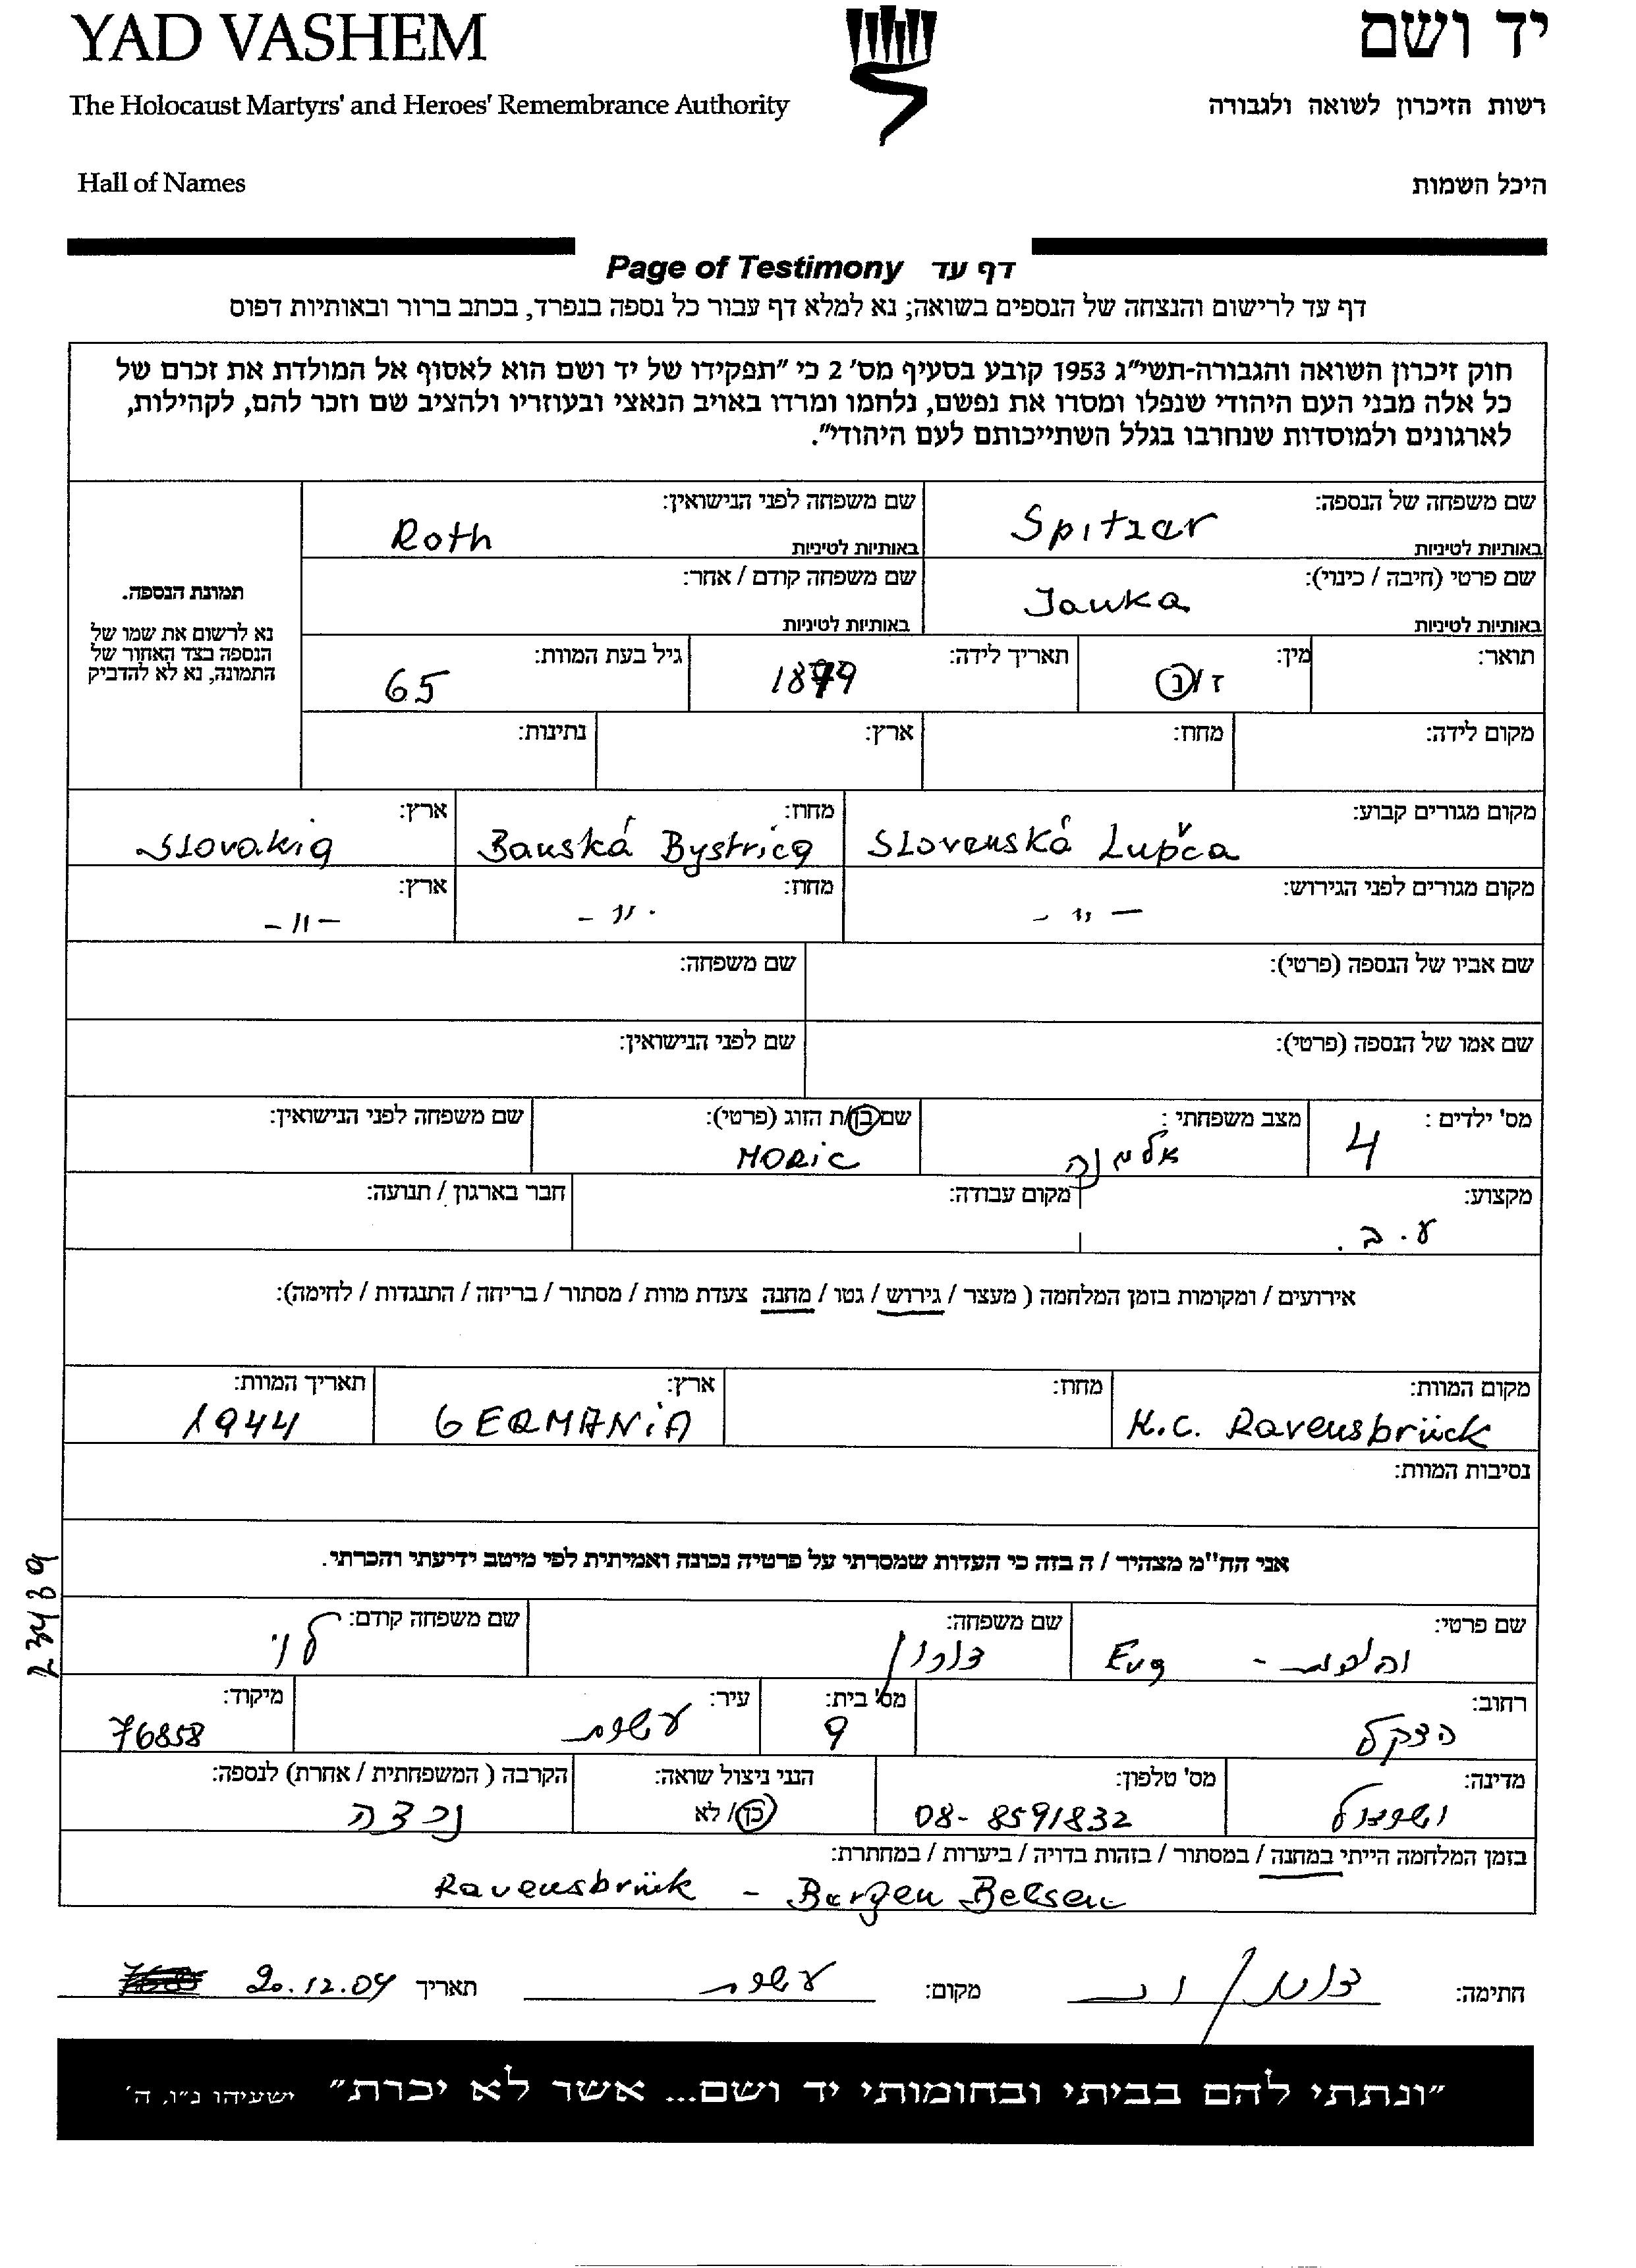 YAD VASHEM
יד ושם
The Holocaust Martyrs' and Heroes' Remembrance Authority
רשות הזיכרון לשואה ולגבורה
Hall of Names
היכל השמות
Page of Testimony דף עד
דף עד לרישום והנצחה של הנספים בשואה; נא למלא דף עבור כל נספה בנפרד, בכתב ברור ובאותיות דפוס
חוק זיכרון השואה והגבורה-תשי"ג 1953 קובע בסעיף מס' 2 כי "תפקידו של יד ושם הוא לאסוף אל המולדת את זכרם של
כל אלה מבני העם היהודי שנפלו ומסרו את נפשם, נלחמו ומרדו באויב הנאצי ובעוזריו ולהציב שם וזכר להם, לקהילות,
לארגונים ולמוסדות שנחרבו בגלל השתייכותם לעם היהודי".
שם משפחה של הנספה: Spitzer
באותיות לטיניות
שם משפחה לפני הנישואין: Roth
באותיות לטיניות
תמונת הנספה.
נא לרשום את שמו של
הנספה בצד האחור של
התמונה, נא לא להדביק
שם פרטי (חיבה / כינוי): Janka
באותיות לטיניות
שם משפחה קודם / אחר:
באותיות לטיניות
תואר:
מין: ז / נ
תאריך לידה: 1879
גיל בעת המוות: 65
מקום לידה:
מחוז:
ארץ:
נתינות:
מקום מגורים קבוע: Slovenská Lupča
מחוז: Banská Bystrica
ארץ: Slovakia
מקום מגורים לפני הגירוש: - 11 -
מחוז: - 11 -
ארץ: - 11 -
שם אביו של הנספה (פרטי):
שם משפחה:
שם אמו של הנספה (פרטי):
שם לפני הנישואין:
מס' ילדים : 4
מצב משפחתי : אלמנה
שם בן/ת הזוג (פרטי): MORIC
שם משפחה לפני הנישואין:
מקצוע: ע. ב.
מקום עבודה:
חבר בארגון / תנועה:
אירועים / ומקומות בזמן המלחמה ( מעצר / גירוש / גטו / מחנה צעדת מוות / מסתור / בריחה / התנגדות / לחימה):
מקום המוות: K.C. Ravensbrück
מחוז:
ארץ: GERMANIA
תאריך המוות: 1944
נסיבות המוות:
אני הח"מ מצהיר / ה בזה כי העדות שמסרתי על פרטיה נכונה ואמיתית לפי מיטב ידיעתי והכרתי.
23489
שם פרטי: - Eva
שם משפחה:
שם משפחה קודם: לוי
רחוב:
מס' בית: 9
עיר: עשרת
מיקוד: 76858
מדינה: ישראל
מס' טלפון: 08-8591832
הנני ניצול שואה: כן / לא
הקרבה ( המשפחתית / אחרת) לנספה: נכדה
בזמן המלחמה הייתי במחנה / במסתור / בזהות בדויה / ביערות / במחתרת:
Ravensbrük - Bergen Belsen
חתימה:
מקום: עשרת
תאריך 20.12.04
"ונתתי להם בביתי ובחומותי יד ושם... אשר לא יכרת" ישעיהו נ"ו, ה'